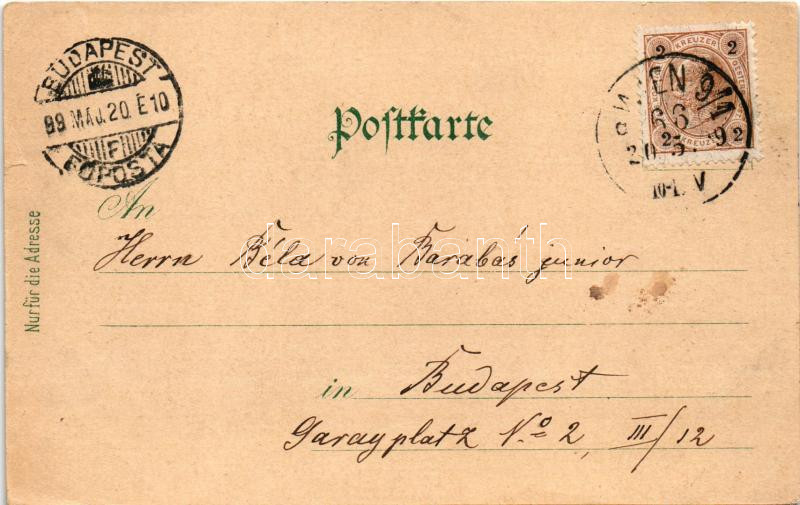 BUDAPEST
99 MÁJ. 20. E 10
F
FŐPOSTA
2 KREUZER 2
2 KREUZER 2
WIEN 9/1
66
10-1. V
Postkarte
Nur für die Adresse
An
Herrn Béla von Barabás junior
darabanth
in Budapest
Garayplatz No 2, III/12